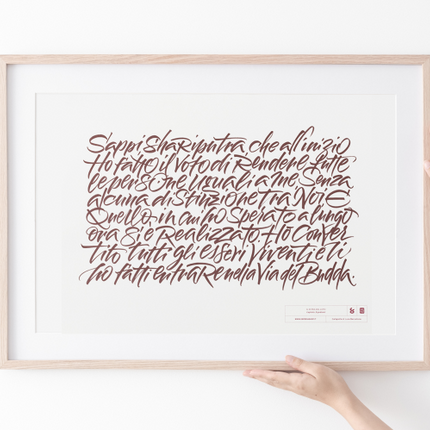 Sappi Shariputra, che all'inizio
Ho fatto il Voto di Rendere tutte
le persone uguali a me, Senza
alcuna distinzione tra Noi E
Quello in cui ho Sperato a lungo
ora Si è Realizzato. Ho Conver
tito tutti gli esseri Viventi e li
ho fatti entrare nella Via del Budda.